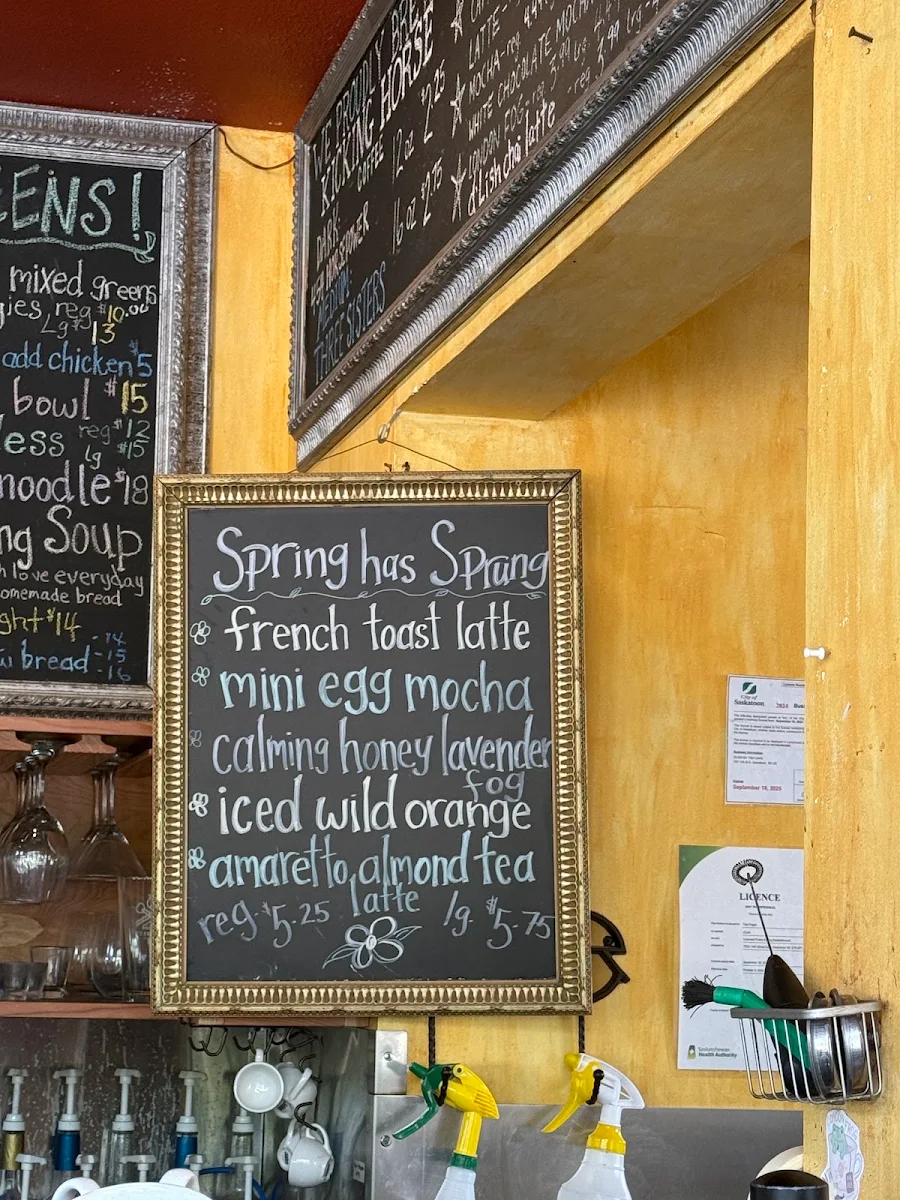 EENS!
mixed greens
gies reg $10.00
Lg $13
add chicken $5
bowl $15
less reg $12
lg $15
noodle $18
ng Soup
h love everyday
omemade bread
ght $14
bread
-14
-15
-16
KICKING HORSE
COFFEE
12 oz $2.25
16 oz $2.75
DARK
MEDIUM
THREE SISTERS
LATTE
MOCHA - reg
WHITE CHOCOLATE MOCHA
LONDON FOG reg 3.99
d'Lish chai latte
Spring has Sprung
french toast latte
mini egg mocha
calming honey lavender
fog
iced wild orange
amaretto almond tea
latte
reg $5.25 lg. $5.75
City of
Saskatoon
2024 Bus
September 16, 2025
LICENCE
Saskatchewan
Health Authority